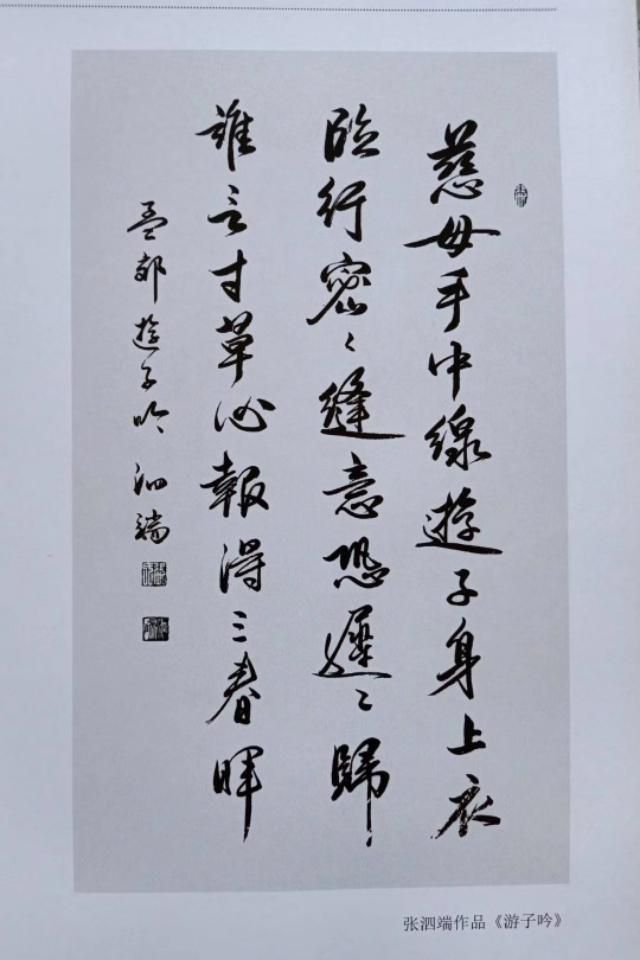 慈母手中線遊子身上衣
臨行密々縫意恐遲々歸
誰言寸草心報得三春暉
孟郊遊子吟 泗端
张泗端作品《游子吟》